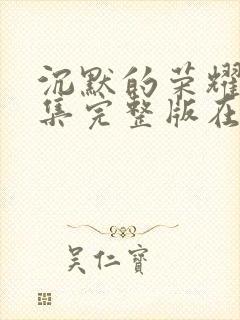 沉默的荣耀
集完整版在
吴仁寶